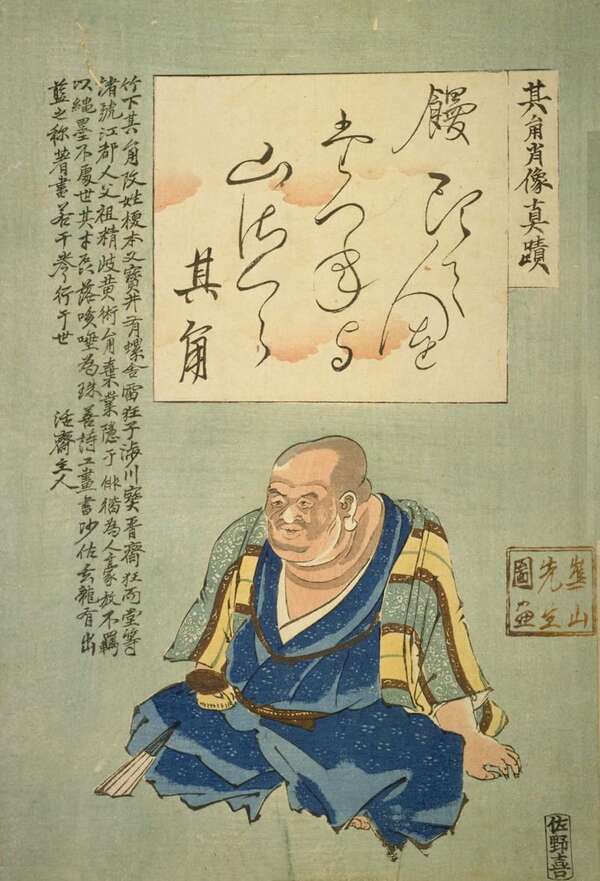 其角肖像真蹟
饅頭て人を
たつねよ
山さくら
其角
竹下其角改姓榎本又寶井有螺舎雷柱子海川寶晋齋狂而堂等
諸號江都人父祖精岐黄術角棄業隠于俳諧為人豪放不羈
以繩墨不處世其才磊落咳唾為珠善詩工畫書沙佐玄龍有出
藍之称著書若干巻行于世
活齋主人
崋山
先生
圖画
佐野喜